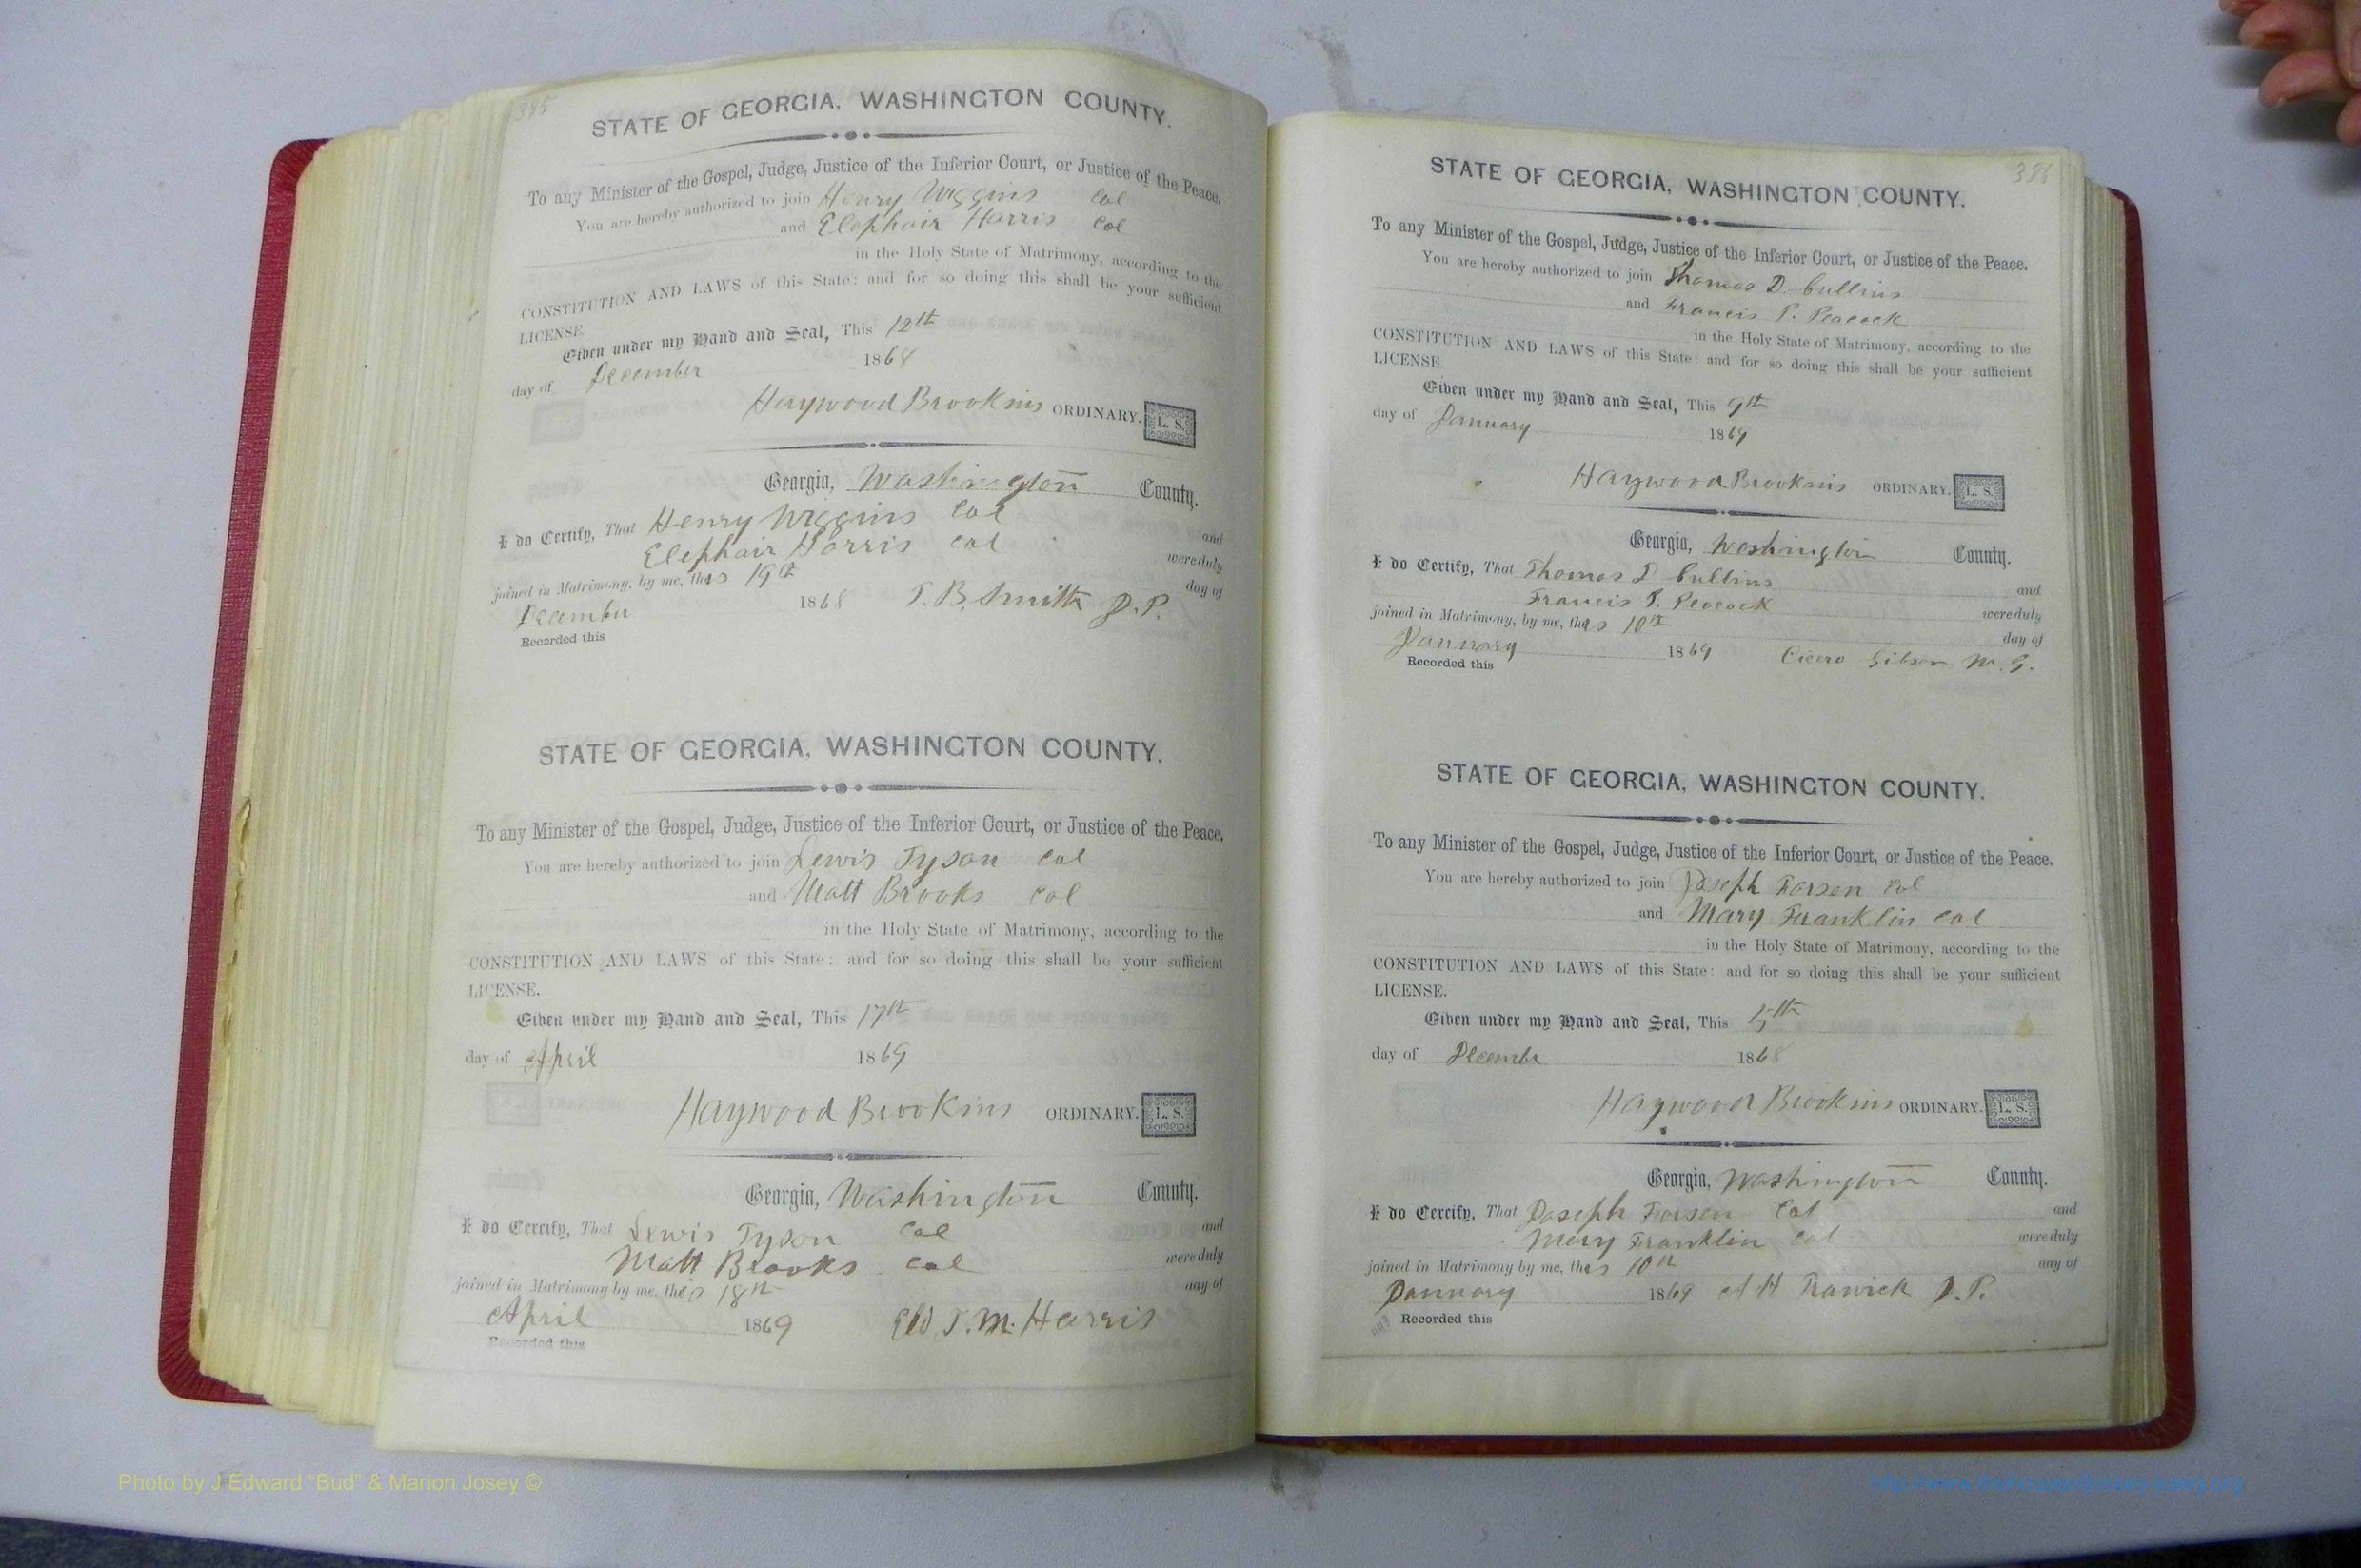 385
STATE OF GEORGIA, WASHINGTON COUNTY.
To any Minister of the Gospel, Judge, Justice of the Inferior Court, or Justice of the Peace.
You are hereby authorized to join Henry Wiggins Col
and Elephair Harris Col
in the Holy State of Matrimony, according to the
CONSTITUTION AND LAWS of this State: and for so doing this shall be your sufficient
LICENSE
Given under my Hand and Seal, This 12th
day of December 1868
Haywood Brookins ORDINARY. L. S.
Georgia, Washington County.
I do Certify, That Henry Wiggins Col and
Elephair Harris Col were duly
joined in Matrimony, by me, this 19th day of
December 1868 T. B. Smith J.P.
Recorded this
STATE OF GEORGIA, WASHINGTON COUNTY.
To any Minister of the Gospel, Judge, Justice of the Inferior Court, or Justice of the Peace.
You are hereby authorized to join Lewis Tyson Col
and Matt Brooks Col
in the Holy State of Matrimony, according to the
CONSTITUTION AND LAWS of this State: and for so doing this shall be your sufficient
LICENSE.
Given under my Hand and Seal, This 17th
day of April 1869
Haywood Brookins ORDINARY. L. S.
Georgia, Washington County.
I do Cercify, That Lewis Tyson Col and
Matt Brooks Col were duly
joined in Matrimony by me, this 18th day of
April 1869 Eld J. M. Harris
Recorded this
386
STATE OF GEORGIA, WASHINGTON COUNTY.
To any Minister of the Gospel, Judge, Justice of the Inferior Court, or Justice of the Peace.
You are hereby authorized to join Thomas D Cullins
and Francis P. Peacock
in the Holy State of Matrimony, according to the
CONSTITUTION AND LAWS of this State: and for so doing this shall be your sufficient
LICENSE
Given under my Hand and Seal, This 9th
day of January 1869
Haywood Brookins ORDINARY. L. S.
Georgia, Washington County.
I do Certify, That Thomas D Cullins and
Francis P. Peacock were duly
joined in Matrimony, by me, this 10th day of
January 1869 Cicero Gibson M. G.
Recorded this
STATE OF GEORGIA, WASHINGTON COUNTY.
To any Minister of the Gospel, Judge, Justice of the Inferior Court, or Justice of the Peace.
You are hereby authorized to join Joseph Forsen Col
and Mary Franklin Col
in the Holy State of Matrimony, according to the
CONSTITUTION AND LAWS of this State: and for so doing this shall be your sufficient
LICENSE.
Given under my Hand and Seal, This 5th
day of Decembr 1868
Haywood Brookins ORDINARY. L. S.
Georgia, Washington County.
I do Cercify, That Joseph Forsen Col and
Mary Franklin Col were duly
joined in Matrimony by me, this 10th day of
January 1869 A H Trawick J.P.
Recorded this
Photo by J Edward "Bud" & Marion Josey ©